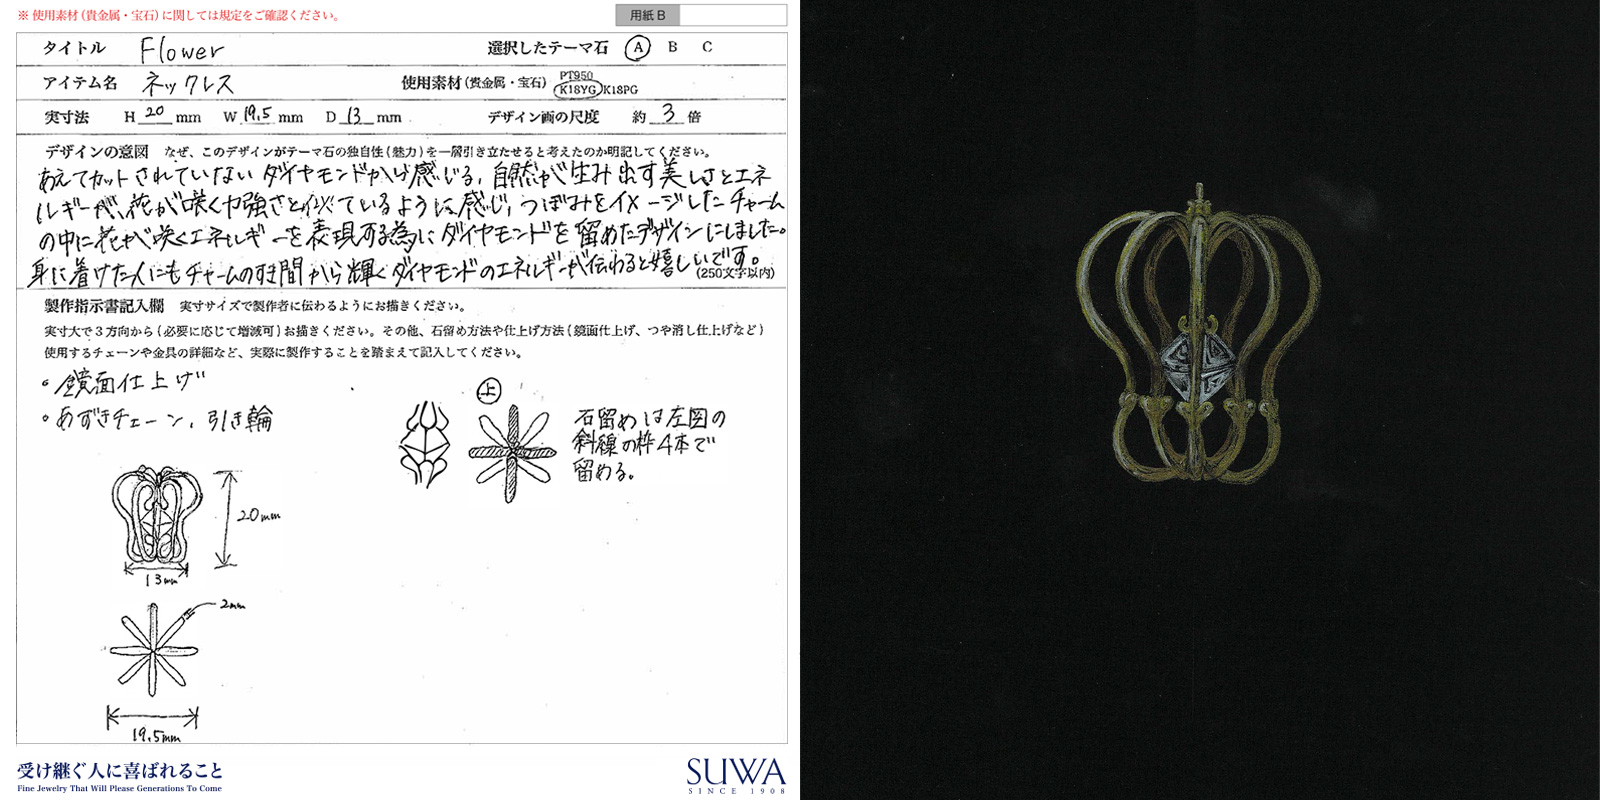 ※ 使用素材（貴金属・宝石）に関しては規定をご確認ください。
用紙 B
タイトル Flower 選択したテーマ石 A B C
アイテム名 ネックレス 使用素材（貴金属・宝石） PT950 K18YG K18PG
実寸法 H 20 mm W 19.5 mm D 13 mm デザイン画の尺度 約 3 倍
デザインの意図 なぜ、このデザインがテーマ石の独自性（魅力）を一層引き立たせると考えたのか明記してください。
あえてカットされていないダイヤモンドから感じる、自然が生み出す美しさとエネ
ルギーが、花が咲く力強さと似ているように感じ、つぼみをイメージしたチャーム
の中に花が咲くエネルギーを表現する為にダイヤモンドを留めたデザインにしました。
身に着けた人にもチャームのすき間から輝くダイヤモンドのエネルギーが伝わると嬉しいです。
（250文字以内）
製作指示書記入欄 実寸サイズで製作者に伝わるようにお描きください。
実寸大で３方向から（必要に応じて増減可）お描きください。その他、石留め方法や仕上げ方法（鏡面仕上げ、つや消し仕上げなど）
使用するチェーンや金具の詳細など、実際に製作することを踏まえて記入してください。
・鏡面仕上げ
・あずきチェーン、引き輪
上
石留めは左図の
斜線の枠4本で
留める。
20mm
13mm
2mm
19.5mm
受け継ぐ人に喜ばれること
Fine Jewelry That Will Please Generations To Come
SUWA
SINCE 1908